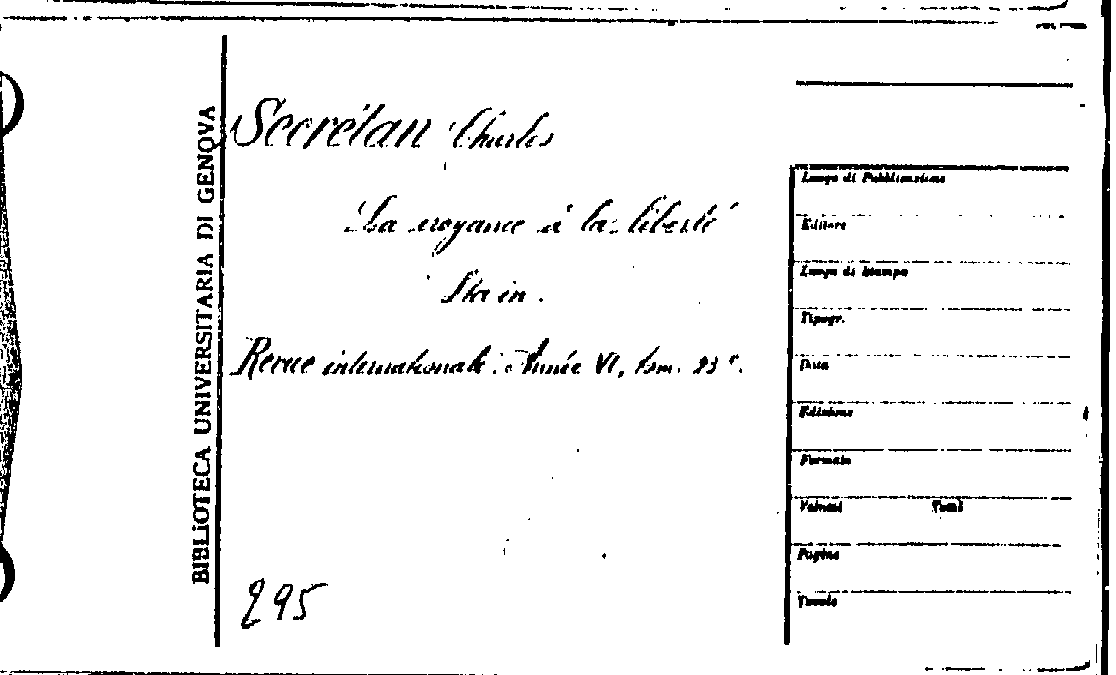 BIBLIOTECA UNIVERSITARIA DI GENOVA
Secrétan Charles
La croyance à la liberté
Sta in.
Revue internationale. Année VI, tom. 23º.
295
Luogo di Pubblicazione
Editore
Luogo di Stampa
Tipogr.
Data
Edizione
Formato
Volumi Tomi
Pagine
Tavole